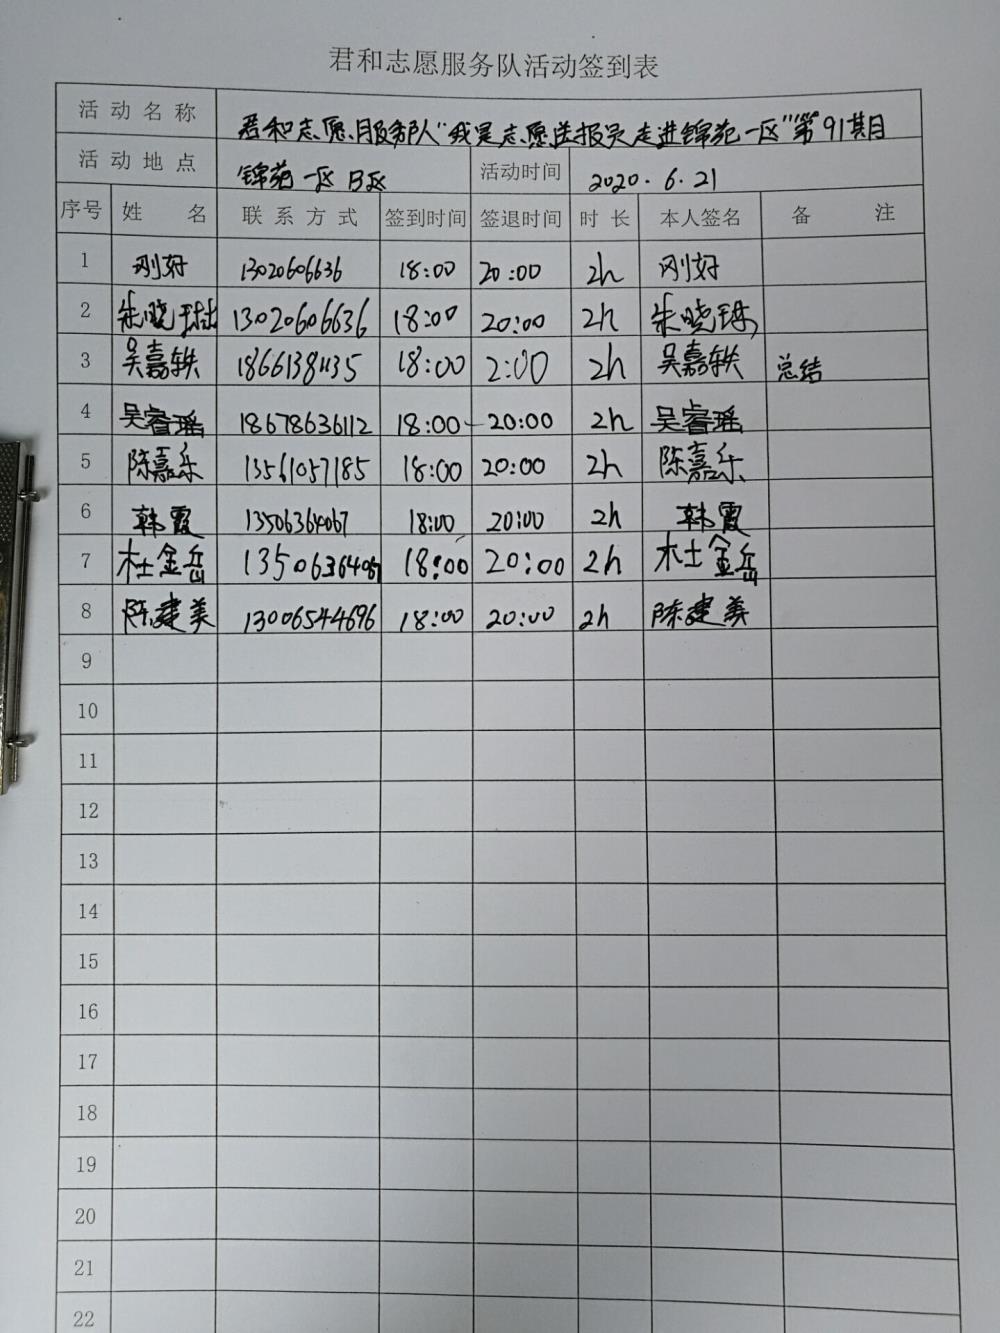 君和志愿服务队活动签到表
活动名称 君和志愿服务队"我是志愿送报员走进锦苑一区"第91期
活动地点 锦苑一区B区 活动时间 2020.6.21
序号 姓名 联系方式 签到时间 签退时间 时长 本人签名 备注
1 刚好 13020606636 18:00 20:00 2h 刚好
2 朱晓琳 13020606636 18:00 20:00 2h 朱晓琳
3 吴嘉轶 18661381135 18:00 2:00 2h 吴嘉轶 总结
4 吴睿瑶 18678636112 18:00 20:00 2h 吴睿瑶
5 陈嘉乐 13561057185 18:00 20:00 2h 陈嘉乐
6 韩霞 13506364067 18:00 20:00 2h 韩霞
7 杜金岳 13506364067 18:00 20:00 2h 杜金岳
8 陈建美 13006544696 18:00 20:00 2h 陈建美
9
10
11
12
13
14
15
16
17
18
19
20
21
22